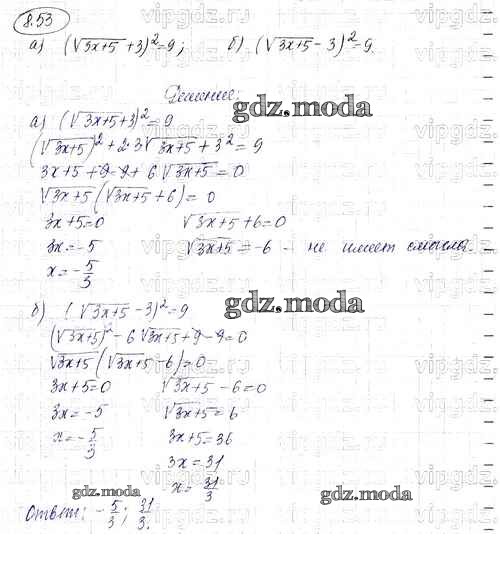 8.53
а) (√3x+5 +3)²=9; б) (√3x+5 - 3)²=9
Решение:
gdz.moda
а) (√3x+5+3)²=9
(√3x+5)²+2·3√3x+5+3²=9
3x+5+9-9+6√3x+5=0
√3x+5(√3x+5+6)=0
3x+5=0 √3x+5+6=0
3x=-5 √3x+5=-6 - не имеет смысла.
x=-5/3
gdz.moda
б) (√3x+5-3)²=9
(√3x+5)²-6√3x+5+9-9=0
√3x+5(√3x+5-6)=0
3x+5=0 √3x+5-6=0
3x=-5 √3x+5=6
x=-5/3 3x+5=36
3x=31
x=31/3
gdz.moda
gdz.moda
Ответ: -5/3; 31/3.
vipgdz